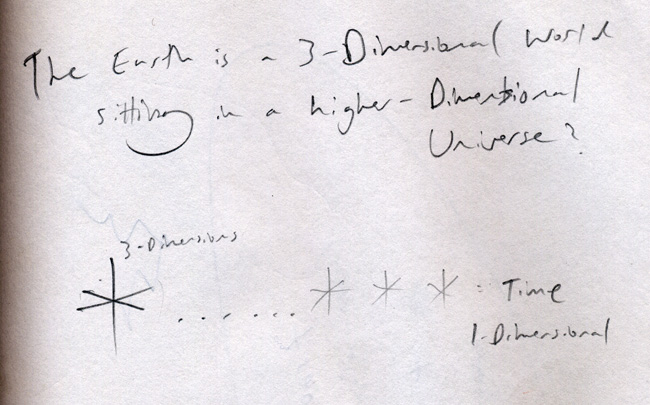 The Earth is a 3-Dimensional World
sitting in a higher-Dimensional
Universe?
3-Dimensions
= Time
1-Dimensional